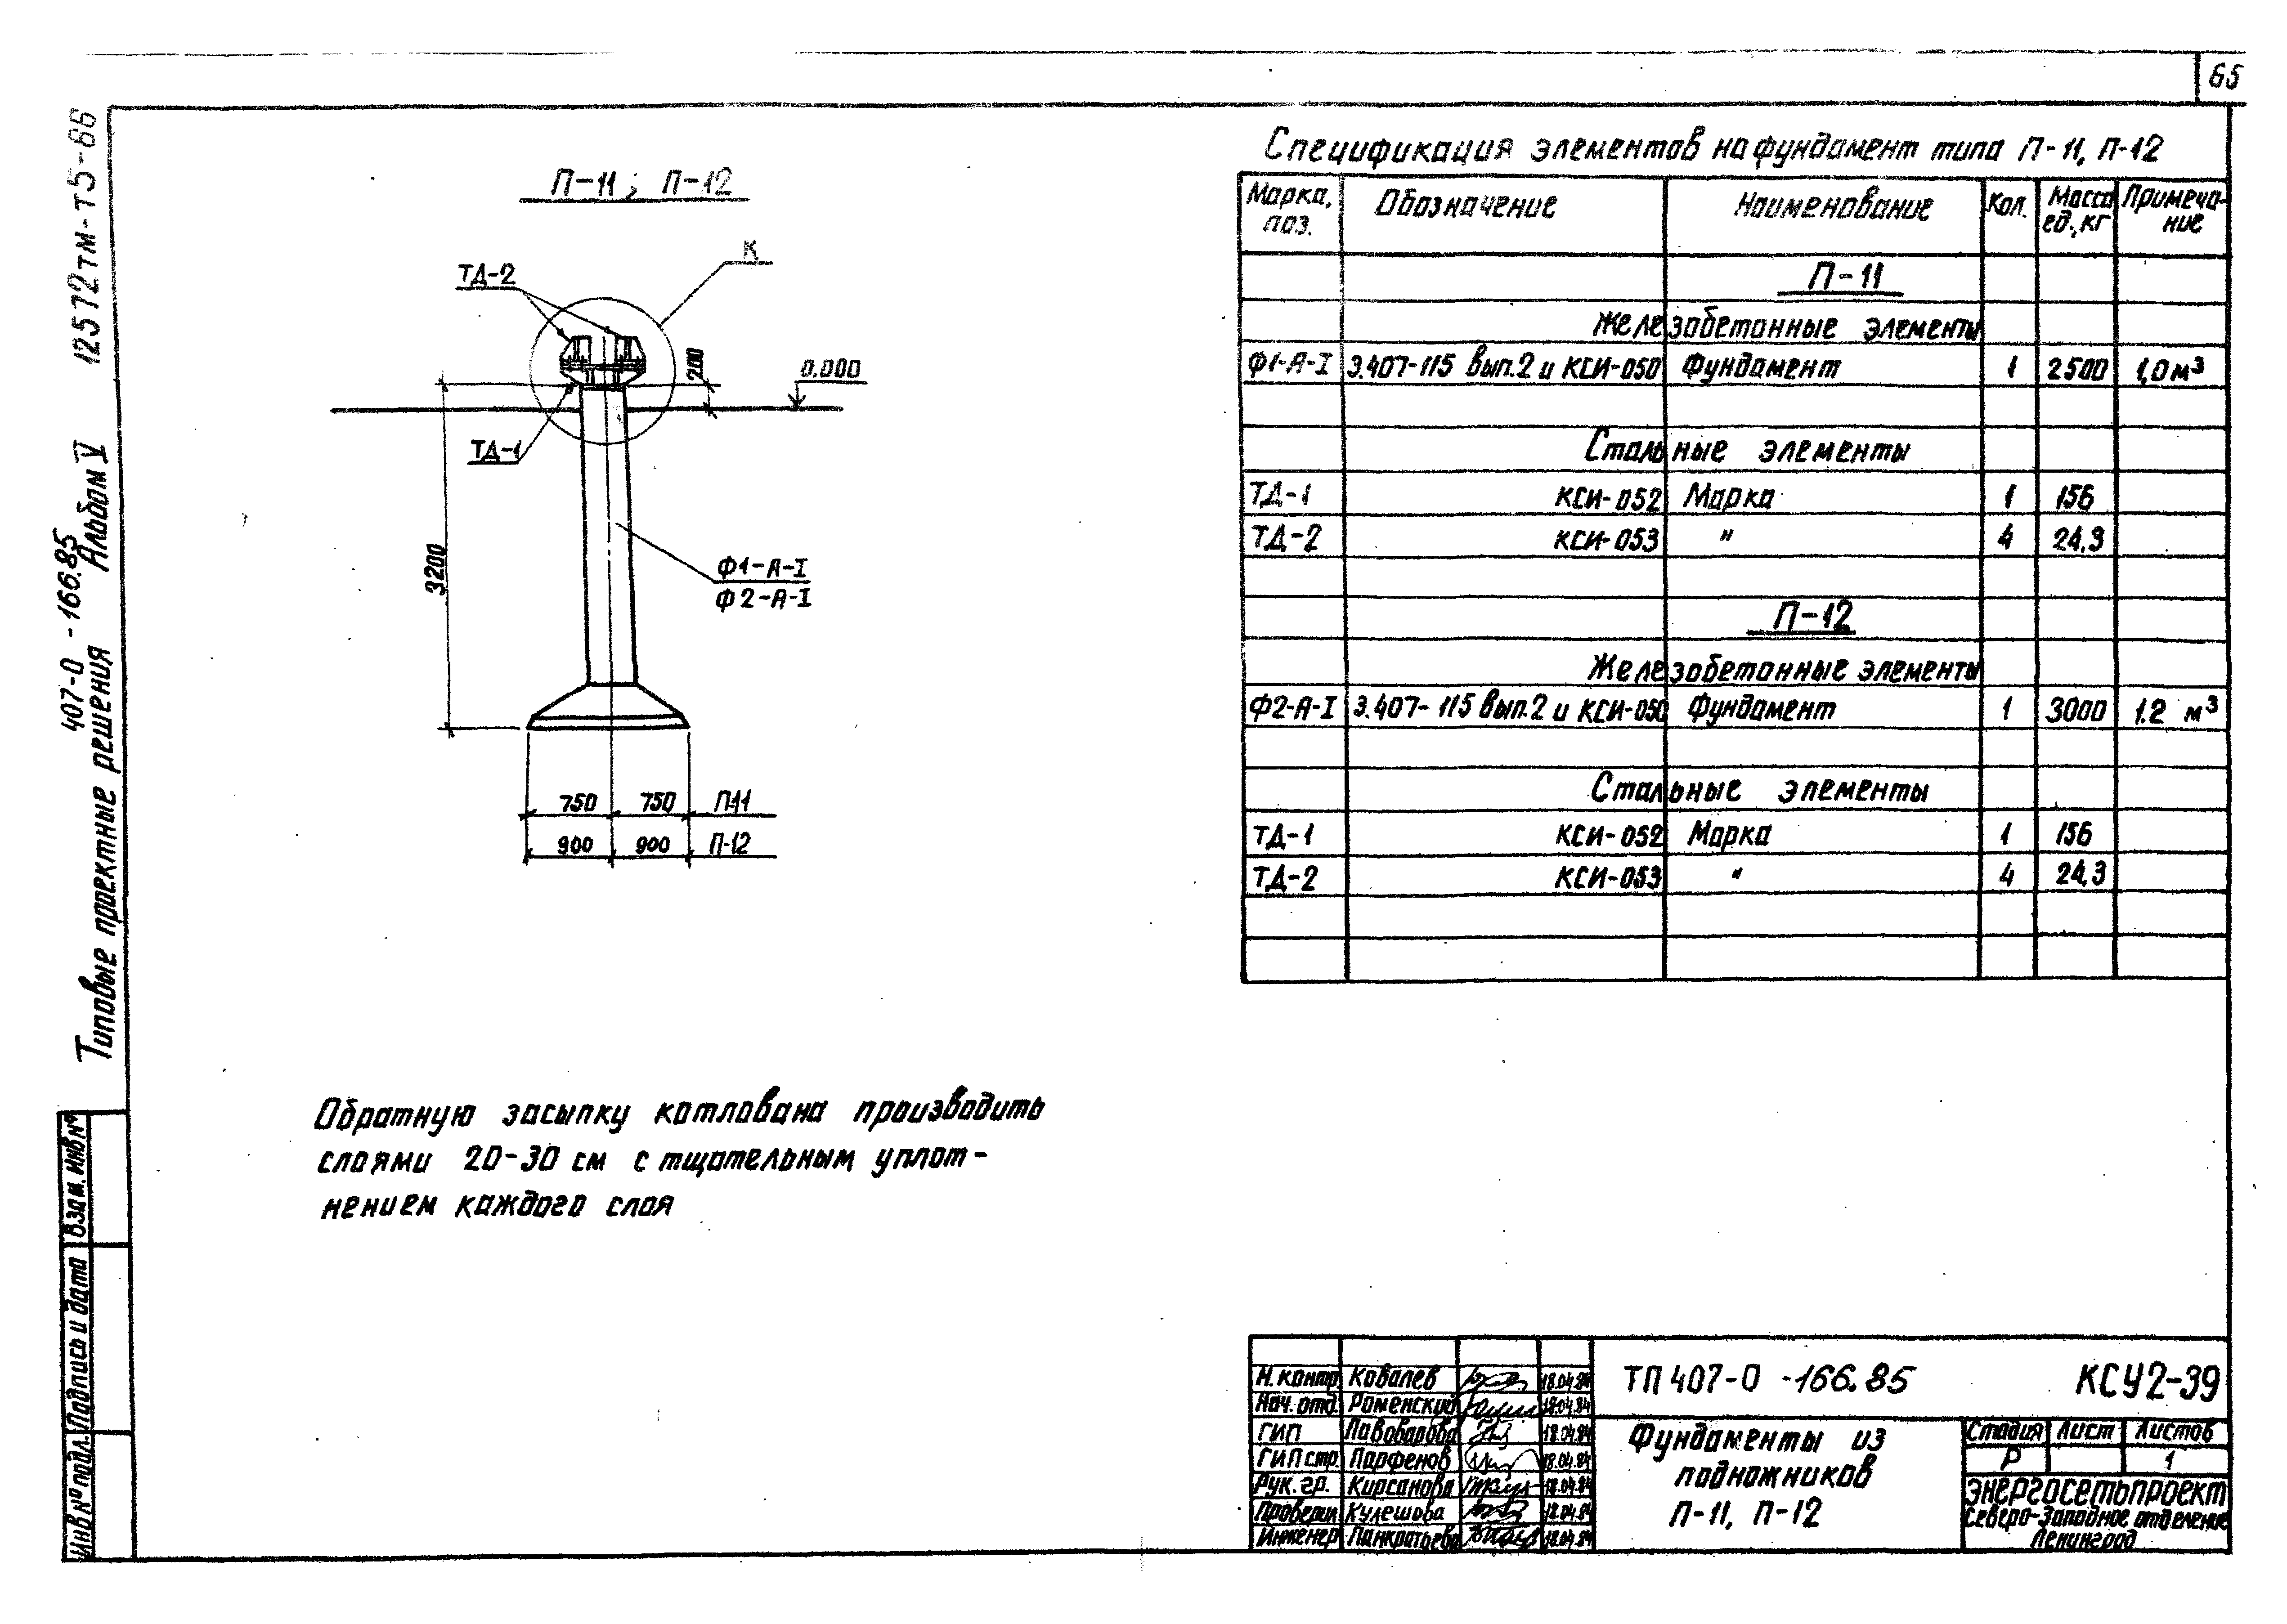 65
12572тм-т5-66
407-0 -166.85
Типовые проектные решения Альбом V
П-11; П-12
К
ТД-2
200
0.000
ТД-1
3200
Ф1-А-I
Ф2-А-I
750 750 П-11
900 900 П-12
Обратную засыпку котлована производить
слоями 20-30 см с тщательным уплот-
нением каждого слоя
Спецификация элементов на фундамент типа П-11, П-12
Марка, поз. Обозначение Наименование Кол. Масса ед., кг Примеча-ние
П-11
Железобетонные элементы
Ф1-А-I 3.407-115 вып.2 и КСИ-050 Фундамент 1 2500 1,0 м³
Стальные элементы
ТД-1 КСИ-052 Марка 1 156
ТД-2 КСИ-053 " 4 24,3
П-12
Железобетонные элементы
Ф2-А-I 3.407-115 вып.2 и КСИ-050 Фундамент 1 3000 1.2 м³
Стальные элементы
ТД-1 КСИ-052 Марка 1 156
ТД-2 КСИ-053 " 4 24,3
Взам. инв №
Подпись и дата
Инв № подл.
Н. контр Ковалев 18.04.84
Нач. отд. Роменский 18.04.84
ГИП 18.04.84
ГИП стр. Парфенов 18.04.84
Рук. гр. Кирсанова 18.04.84
Проверил Кулешова 18.04.84
Инженер Панкратьева 18.04.84
ТП 407-0 -166.85 КСУ2-39
Фундаменты из
подножников
П-11, П-12
Стадия Лист Листов
Р 1
Энергосетьпроект
Северо-Западное отделение
Ленинград